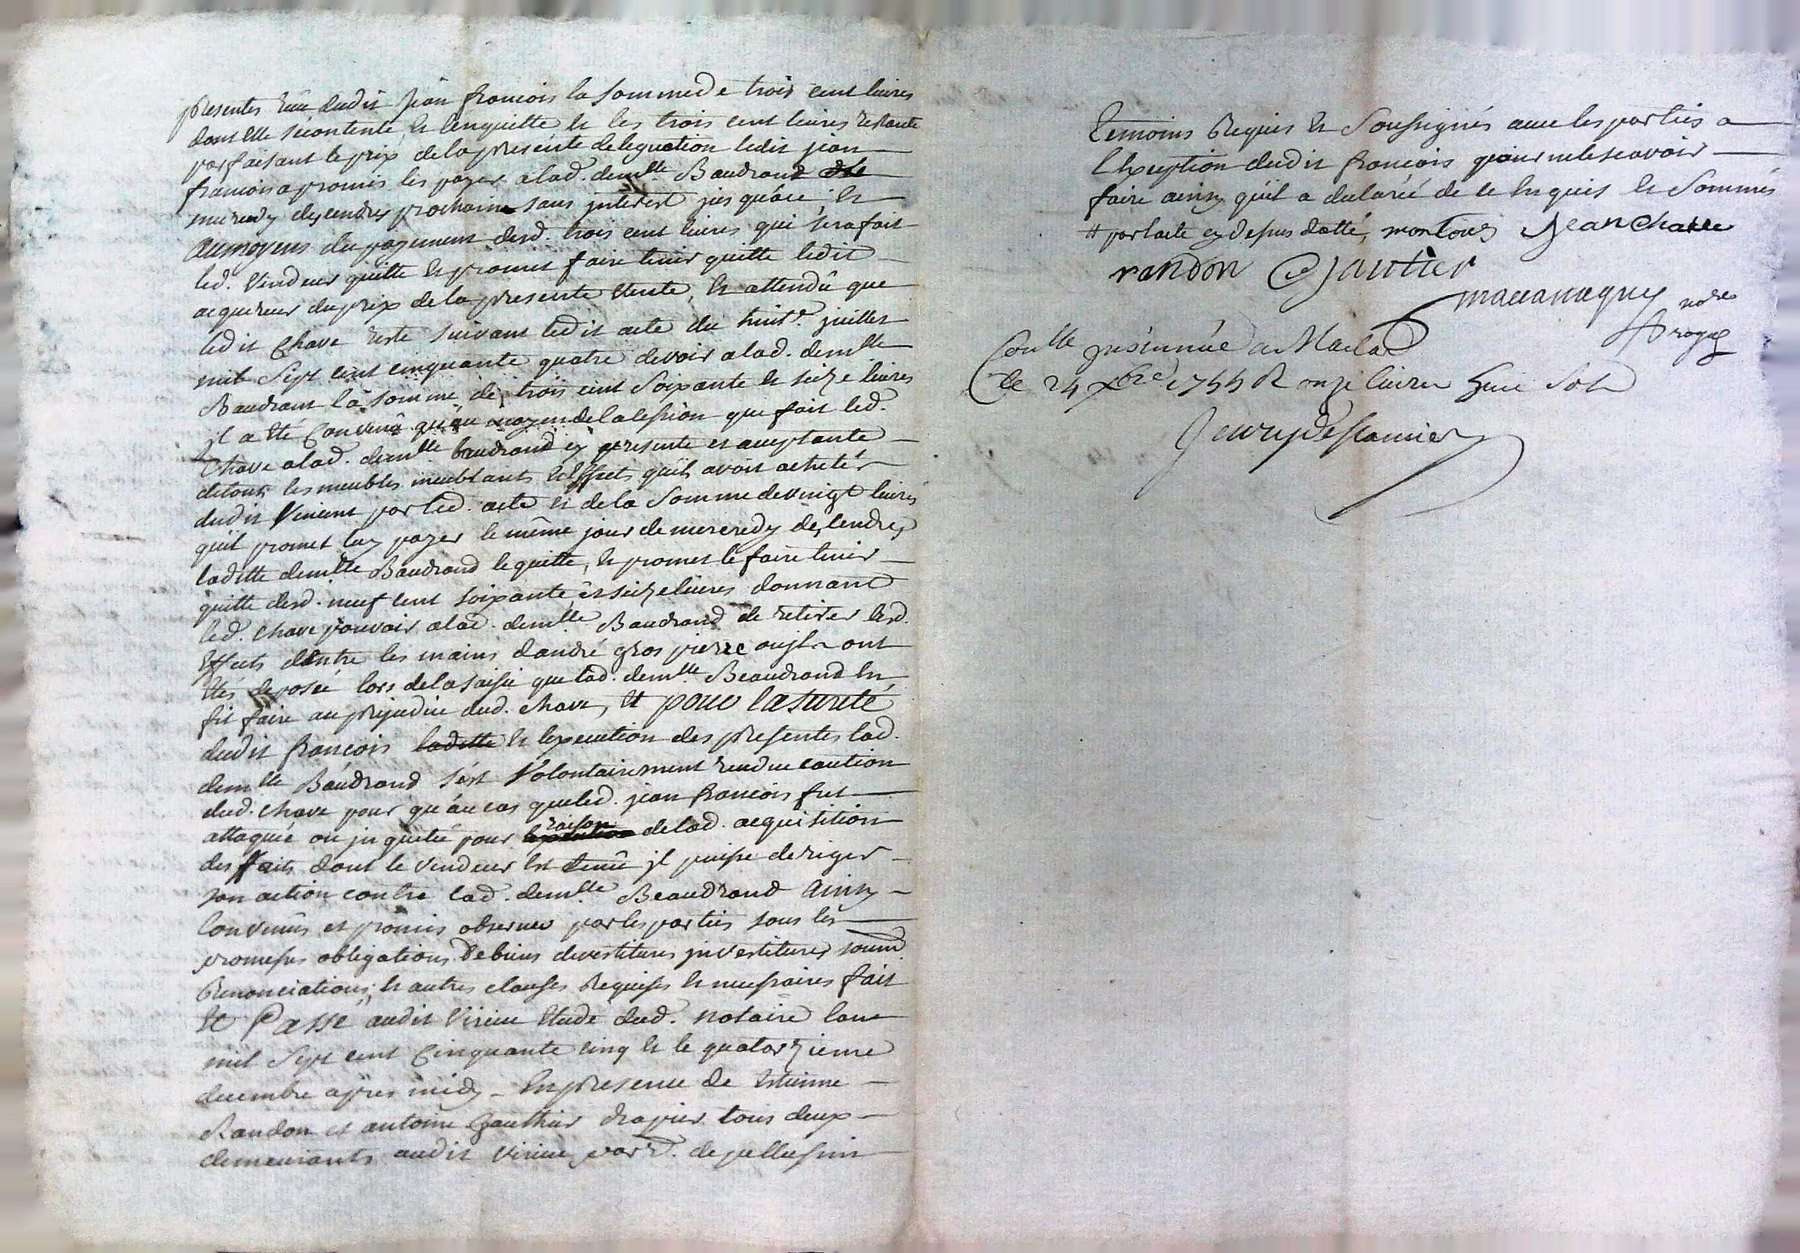 presentes reçu dudit jean francois la somme de trois cent livres
dont elle se contente et l'enquitte et les trois cent livres restante
parfaisant le prix de la presente deleguation ledit jean
francois a promis les payer a lad. demlle Baudrand
mercredy des cendres prochain sans interest jusqu'ace, et
au moyens du payement desd. trois cent livres qui sera fait
led. vendeur quitte et promet faire tenir quitte ledit
acquereur du prix de la presente vente, et attendû que
ledit Chave reste suivant ledit acte du huite. juillet
mil sept cent cinquante quatre devoir a lad. demlle
Baudrant la somme de trois cent soixante et seize livres
il a ete convenû qu'au moyen de la cession que fait led.
Chave a lad. demlle baudrand cy presente et acceptante
de tous les meubles meublants et effects quil avoit achetés
dudit Vincent par led. acte et de la somme de vingt livres
quil promet luy payer le même jour de mercredy des cendres
laditte demlle Baudrand le quitte, et promet le faire tenir
quitte desd. neuf cent soixante et seize livres donnant
led. chave pouvoir a lad. demlle Baudrand de retirer lesd.
effects dentre les mains d'andré gros pierre ou ils ont
étés deposée lors de la saisie que lad. demlle Beaudrand en
fit faire au prejudice dud. chave, et pour la sureté
dudit francois laditte et l'execution des presentes lad.
demlle Baudrand s'est volontairement rendue caution
dud. chave pour qu'au cas que led. jean francois fut
attaquée ou inquietée pour raison de lad. acquisition
des faits dont le vendeur est tenû il puisse deriger
son action contre lad. demlle Beaudrand ainsy
convenûs et promis observer par les parties sous les
promesses obligations de biens devestitures investitures soumd.
renonciations, et autres clauses requises et necessaires fait
et Passé audit virieu etude dud. notaire l'an
mil sept cent cinquante cinq et le quatorzieme
decembre apres midy en presence de etienne
Randon et antoine Gauthier drapier tous deux
demeurants audit virieu par. de pellussin
temoins requis et soussignés avec les parties a
l'exception dudit francois pour ne le scavoir
faire ainsy qu'il a declarée de ce enquis et sommés
# par lacte cy depus datté, montouy Jean Chave
randon Gautier
macaneguy nore
royal
Conlle insinuée a Maclas
Ce 24 xbre 1755 R onze livres huit sols